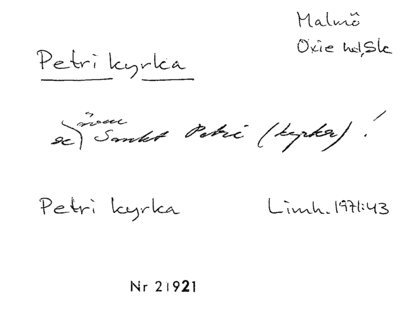 Malmö
Oxie hd, Sk
Petri kyrka
även
se Sankt Petri (kyrka) !
Petri kyrka Limh. 1971:43
Nr 21921